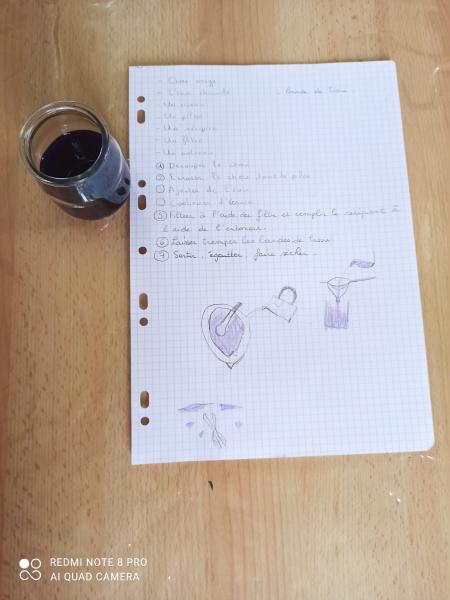 - Chou rouge
- L'eau chaude
- Bande de Tissu
- Un
- Un pilon
- Un récipient
- Un filtre
- Un
① Découper le chou
② Ecraser le chou dans le pilon
③ Ajouter de l'eau
④ Continuer d'écraser
⑤ Filtrer à l'aide du filtre et remplir le récipient à
l'aide de l'entonnoir.
⑥ Laisser tremper les bandes de tissu
⑦ Sortir, égoutter, faire sécher.
REDMI NOTE 8 PRO
AI QUAD CAMERA